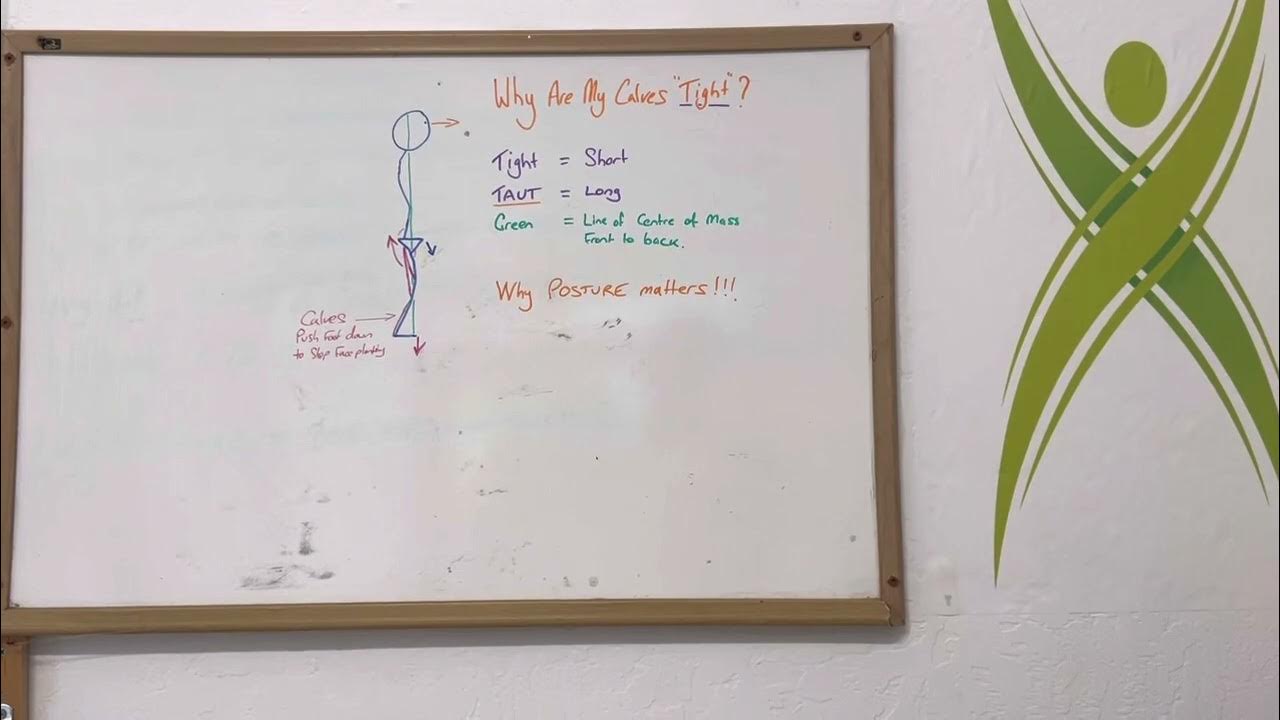 Why Are My Calves "Tight"?
Tight = Short
TAUT = Long
Green = Line of Centre of Mass
Front to back.
Why POSTURE matters!!!
Calves
Push Foot down
to Stop Face planting